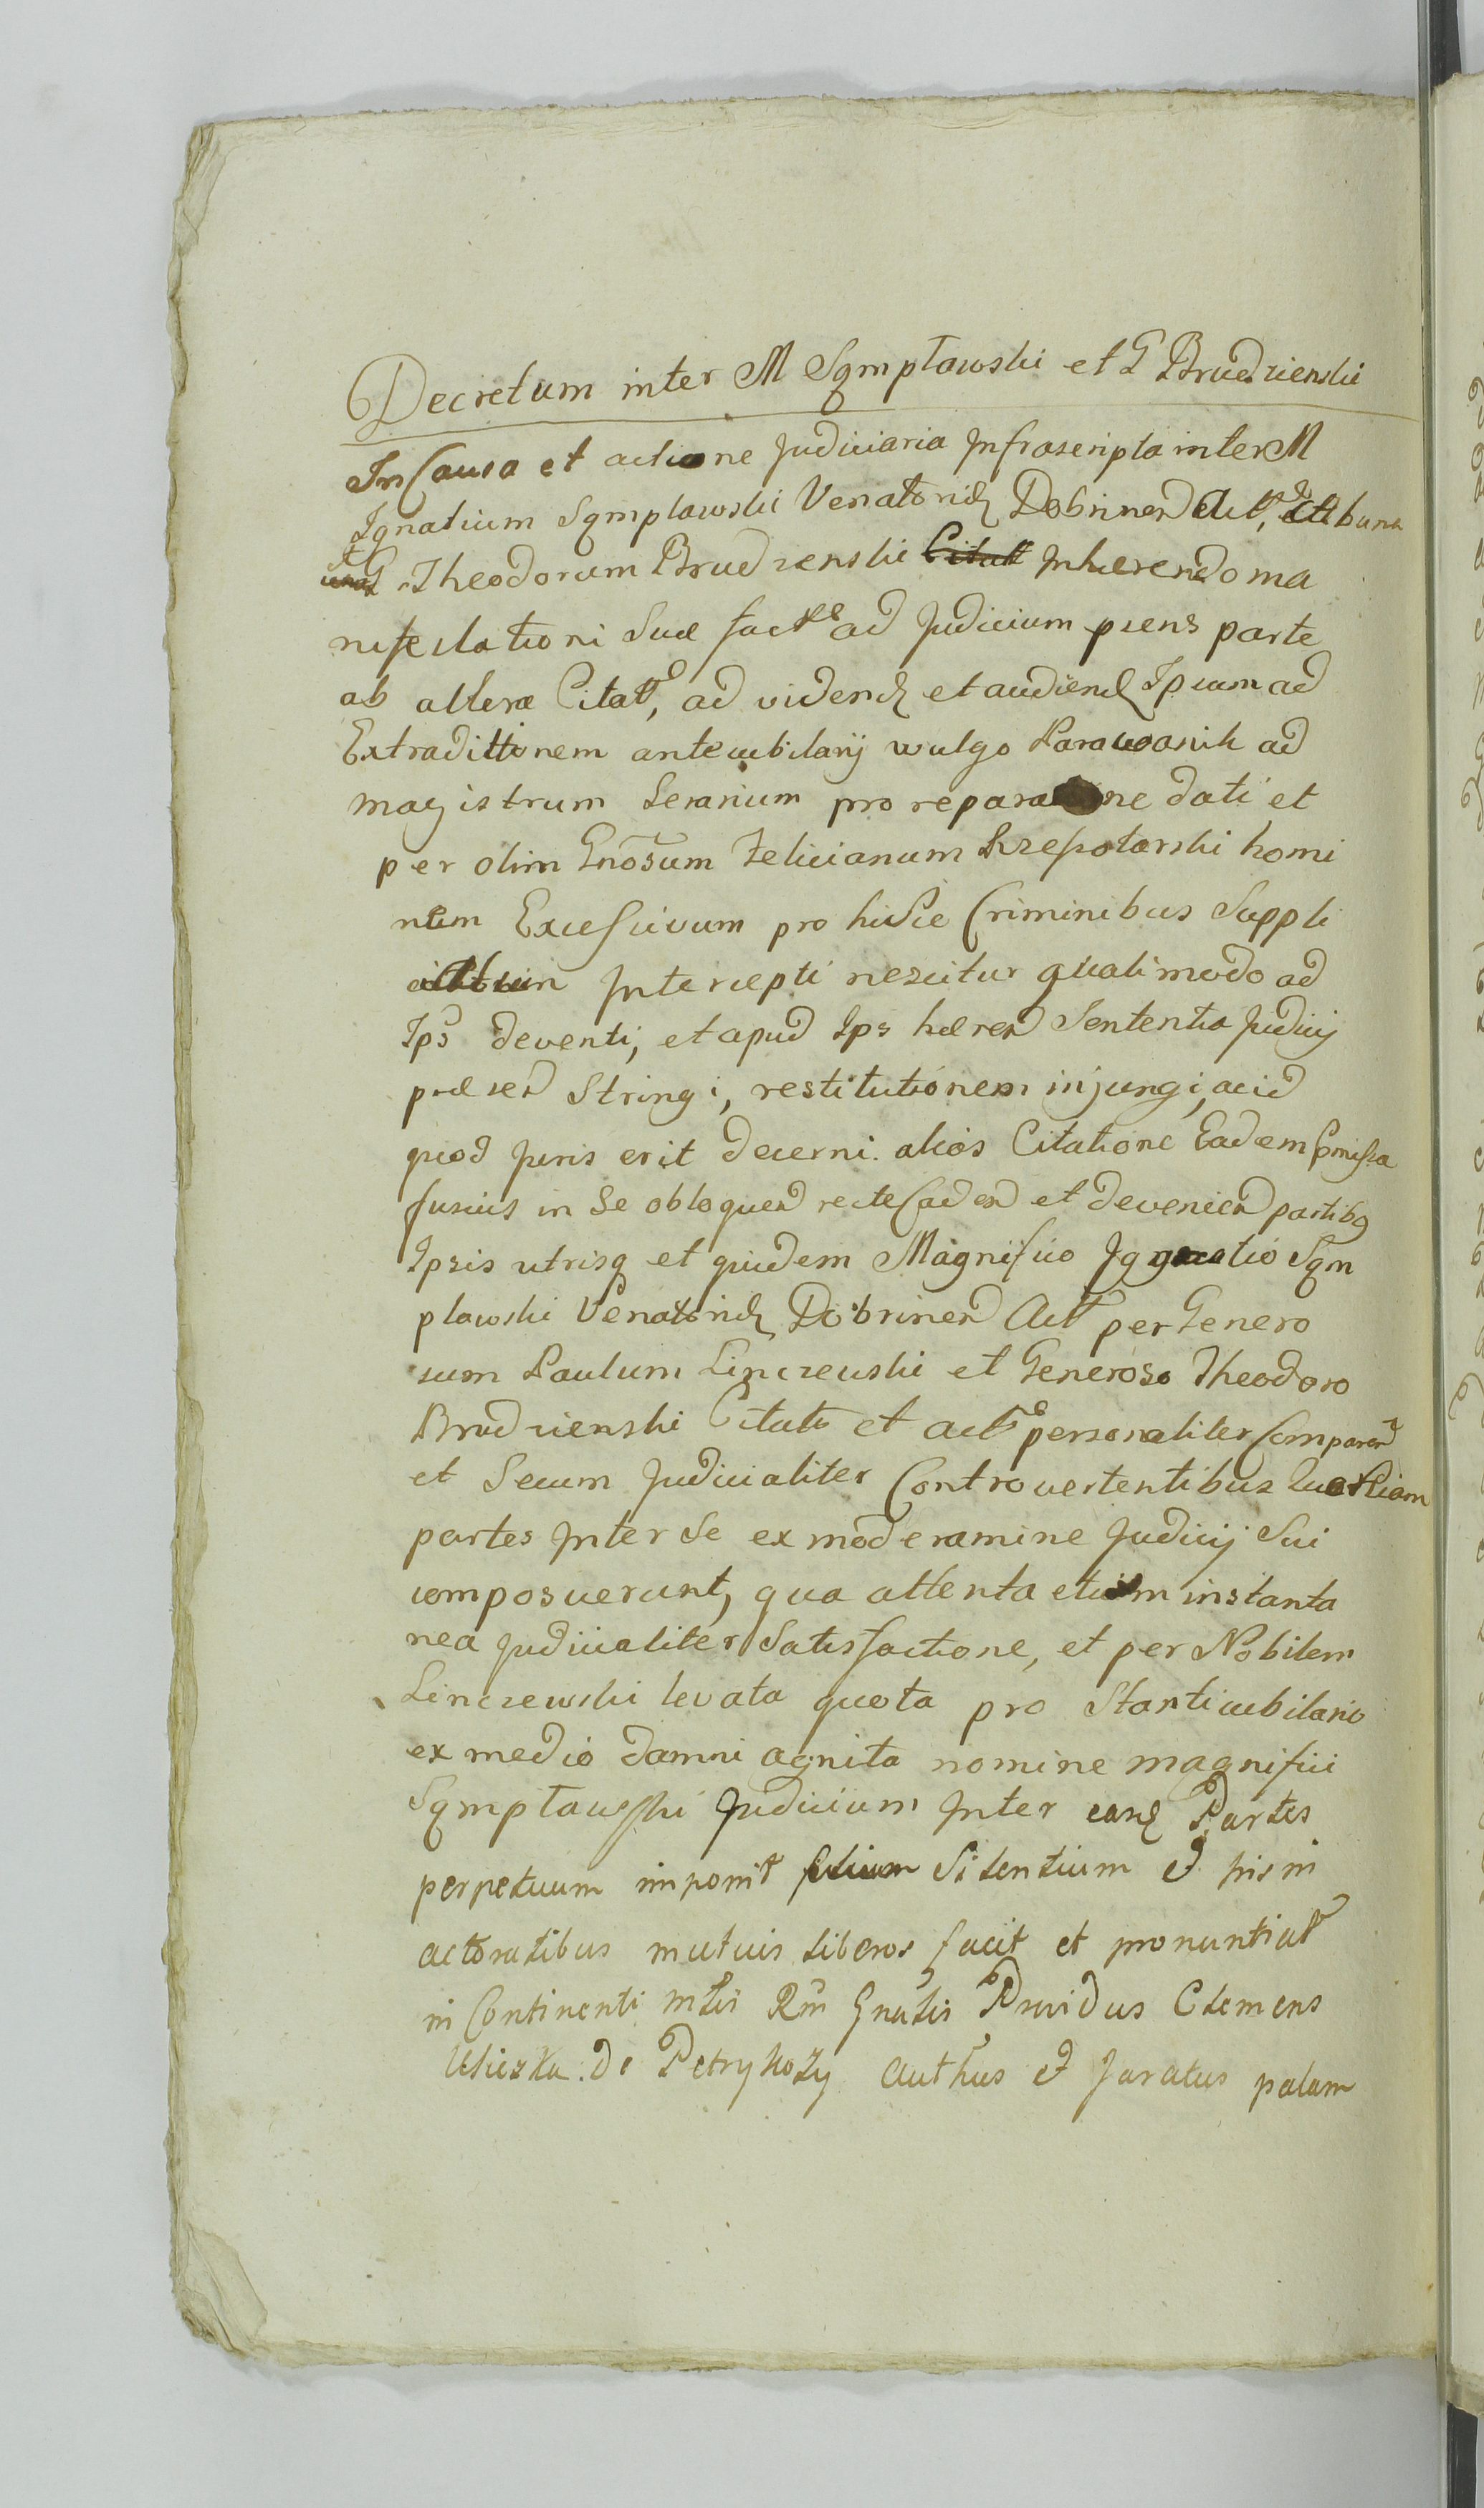 Decretum inter M Sqmpławski et G Brudzienski
In Causa et actione Judiciaria Infrascripta inter M
Ignatium Sqmplawski Venatorid Dobrinen Act,
G Theodorum Brudzenski Citatt Inherendo ma
nifestationi Suæ factæ ad Judicium præns parte
ab altera Citatt, ad vidend et audiend Ipsum ad
Extradittionem antecubilarij wulgo Parawanik ad
magistrum Serarium pro reparatione dati et
per olim Gnosum Felicianum Rzeszotarski homi
nem Excessivum pro hisce Criminibus Suppli
Intercepti nescitur qualimodo ad
Ips deventi, et apud Ips hæren Sententia Judicij
præsen Stringi, restitutionem injungi, ac id
quod Juris erit decerni. alios Citatione Eadem pmissa
fusius in Se obloquen recte Caden et devenien partibq
Ipsis utrisq et quidem Magnifico Ignatio Sqm
plawski Venatorid Dobrinen Act per Genero
sum Paulum Linczewski et Generoso Theodoro
Brudzienski Citato et act personaliter Comparen
et Secum Judicialiter Controvertentibus
partes Inter Se ex moderamine Judicij Sui
composuerunt, qua attenta etiam instanta
nea Judicialiter Satisfactione, et per Nobilem
Linczewski levata quota pro Stanticubilario
ex medio damni agnita nomine magnifici
Sqmpławski Judicium Inter easd Partes
perpetuum imponit Silentium et his in
actoratibus mutuis liberos facit et pronuntiat
in Continenti Mtis Rm Gnalis Providus Clemens
Uliczka de Petrykozy Authus et Juratus palam